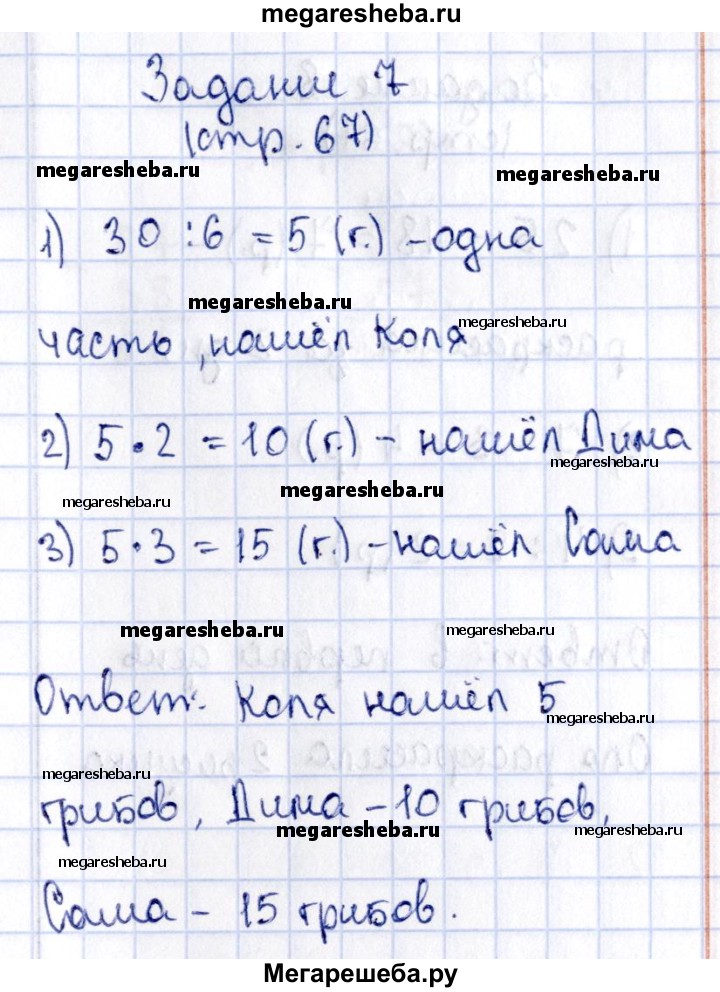 megaresheba.ru
Задание 7
(стр. 67)
megaresheba.ru megaresheba.ru
1) 30 : 6 = 5 (г.) - одна
megaresheba.ru
megaresheba.ru
часть, нашёл Коля
2) 5 · 2 = 10 (г.) - нашёл Дима
megaresheba.ru
megaresheba.ru
megaresheba.ru
3) 5 · 3 = 15 (г.) - нашёл Саша
megaresheba.ru megaresheba.ru
Ответ: Коля нашёл 5
megaresheba.ru
megaresheba.ru
грибов, Дима - 10 грибов,
megaresheba.ru megaresheba.ru
megaresheba.ru
Саша - 15 грибов.
Мегарешеба.ру